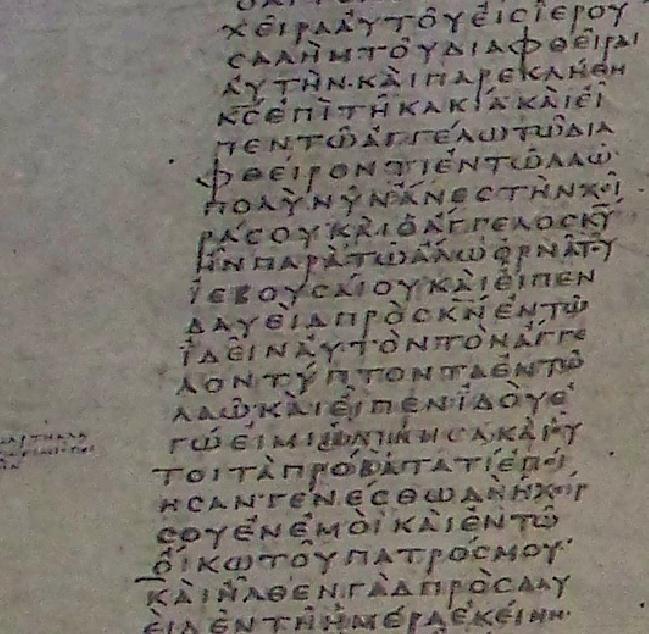 ΧΕΙΡΑΑΥΤΟΥΕΙΣΙΕΡΟΥ
ΣΑΛΗΜΤΟΥΔΙΑΦΘΕΙΡΑΙ
ΑΥΤΗΝ·ΚΑΙΠΑΡΕΚΛΗΘΗ
ΚΣΕΠΙΤΗΚΑΚΙΑΚΑΙΕΙ
ΠΕΝΤΩΑΓΓΕΛΩΤΩΔΙΑ
ΦΘΕΙΡΟΝΤΙΕΝΤΩΛΑΩ
ΠΟΛΥΝΥΝΑΝΕΣΤΗΝΧΙ
ΡΑΣΟΥΚΑΙΟΑΓΓΕΛΟΣΚΥ
ΗΝΠΑΡΑΤΩΑΛΩΟΡΝΑΤΟΥ
ΙΕΒΟΥΣΑΙΟΥΚΑΙΕΙΠΕΝ
ΔΑΥΕΙΔΠΡΟΣΚΝΕΝΤΩ
ΙΔΕΙΝΑΥΤΟΝΤΟΝΑΓΓΕ
ΛΟΝΤΥΠΤΟΝΤΑΕΝΤΩ
ΛΑΩΚΑΙΕΙΠΕΝΙΔΟΥΕ
ΓΩΕΙΜΙΗΔΙΚΗΣΑΚΑΙΟΥ
ΤΟΙΤΑΠΡΟΒΑΤΑΤΙΕΠΟΙ
ΗΣΑΝ·ΓΕΝΕΣΘΩΔΗΗΧΙΡ
ΣΟΥΕΝΕΜΟΙΚΑΙΕΝΤΩ
ΟΙΚΩΤΟΥΠΑΤΡΟΣΜΟΥ·
ΚΑΙΗΛΘΕΝΓΑΔΠΡΟΣΔΑΥ
ΕΙΔΕΝΤΗΗΜΕΡΑΕΚΕΙΝΗ·